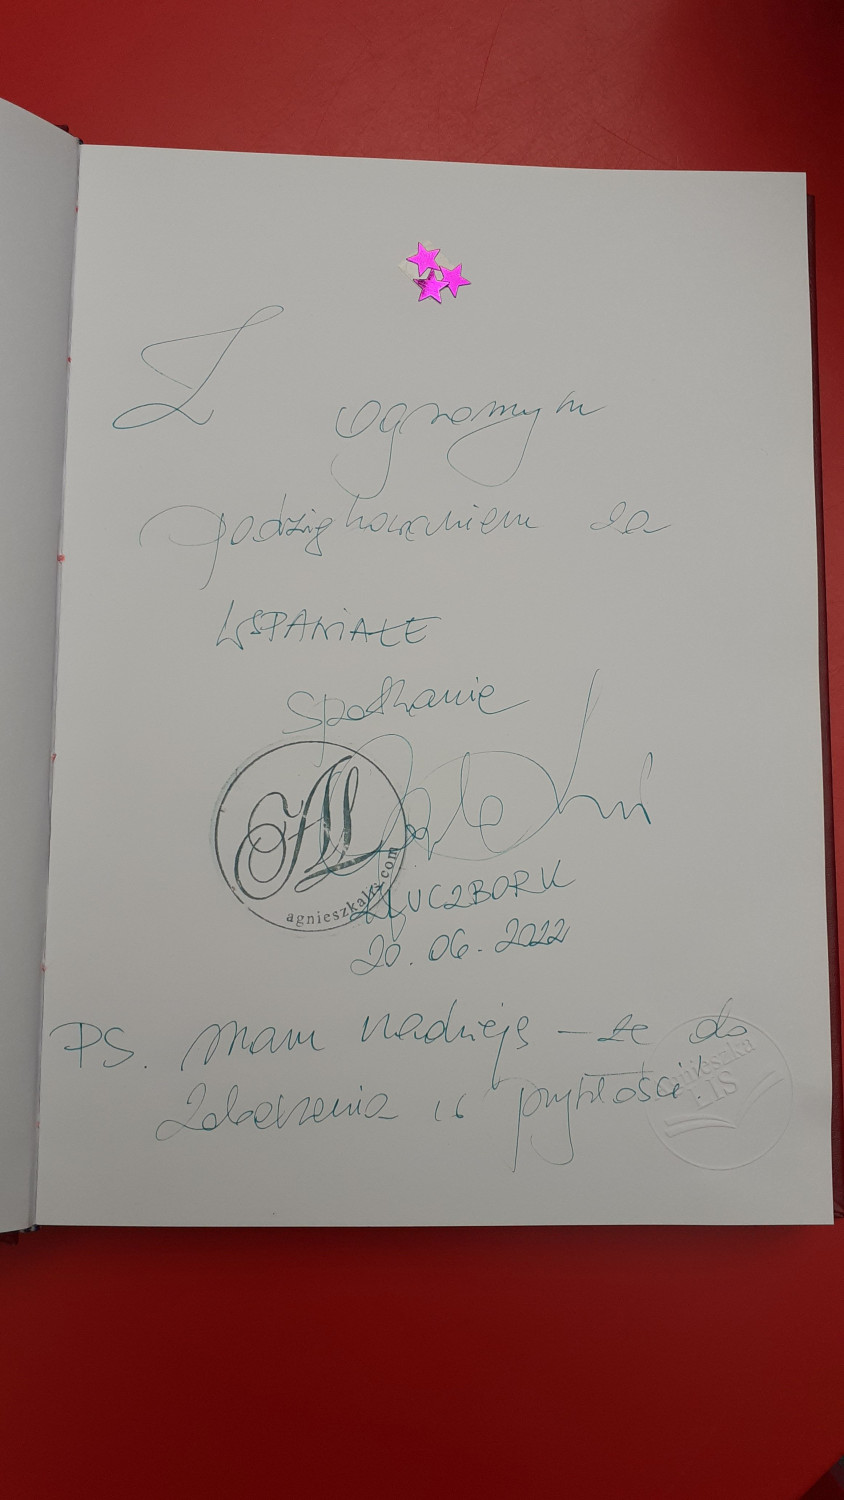 Z ogromnym
podziękowaniem za
WSPANIAŁE
spotkanie
AL
agnieszkalis.com
KLUCZBORK
20.06.2022
PS. Mam nadzieję – że do
zobaczenia w przyszłości!
Agnieszka
LIS